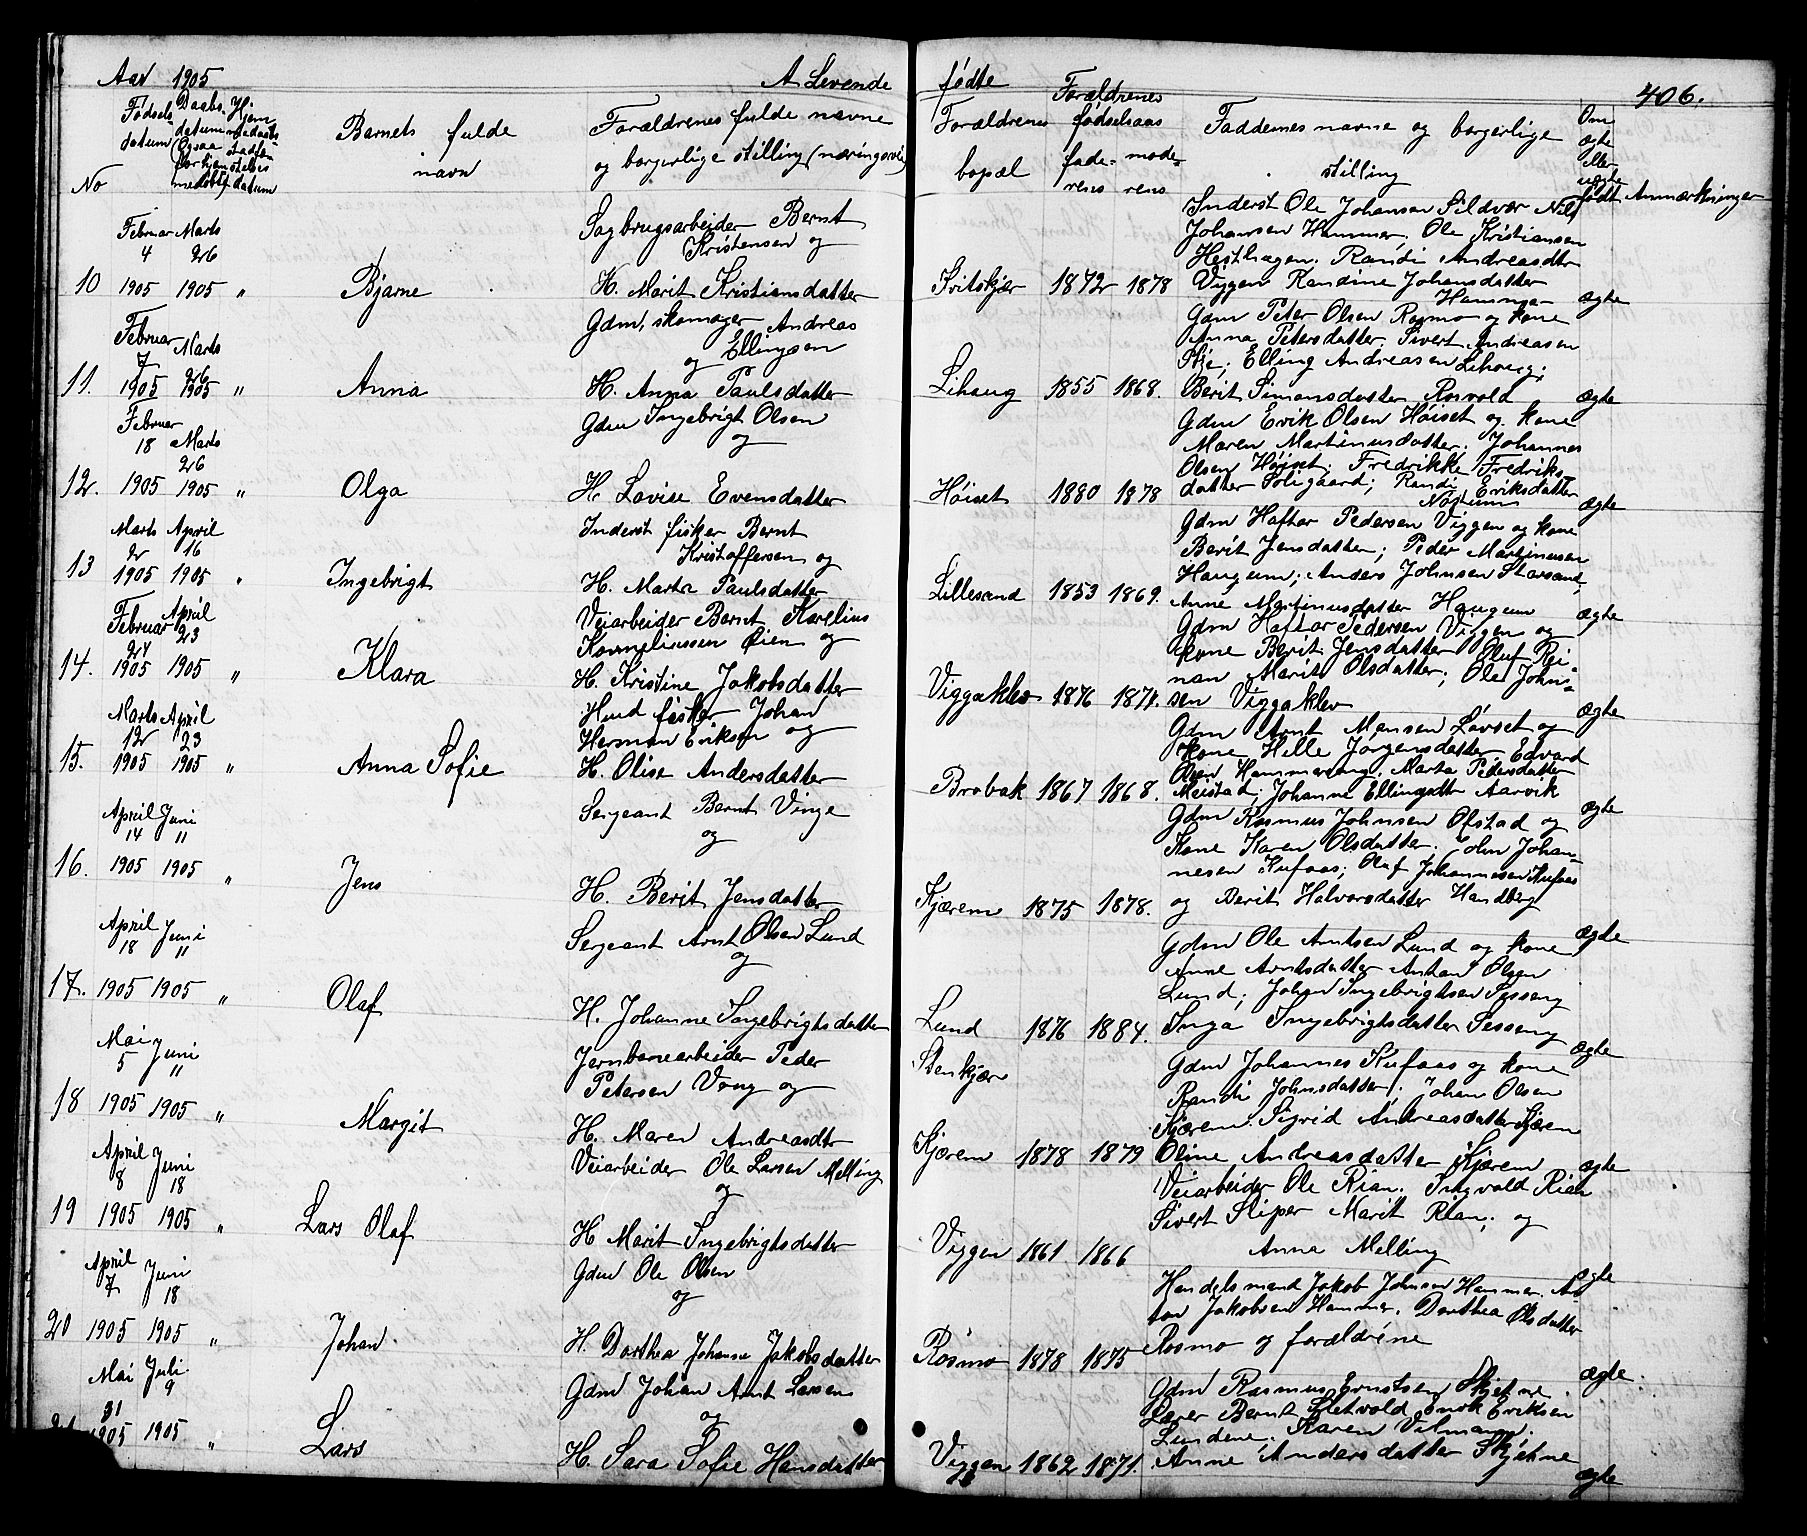 Aar 1905
A Levende
Fødsels datum
Daabs datum
Barnets fulde navn
Forældrenes fulde navne og borgerlige stilling (næringsvei)
No
Februar 4 1905
Marts 26 1905
10
"
Bjarne
Sagbrugsarbeider Bernt
Kristensen og
H. Marit Kristiansdatter
Februar 7 1905
Marts 26 1905
11.
"
Anna
Gdm, skomager Andreas
og Ellingsen
H. Anna Paulsdatter
Februar 18 1905
Marts 26 1905
12.
"
Olga
Gdm Ingebrigt Olsen
og
H. Lovise Evensdatter
Marts 2 1905
April 16 1905
13
"
Ingebrigt
Inderst fisker Bernt
Kristoffersen og
H. Marta Paulsdatter
Februar 24 1905
April 23 1905
14.
"
Klara
Veiarbeider Bernt Karelius
Kornneliussen Øien og
H. Kristine Jakobsdatter
Marts 12 1905
April 23 1905
15.
"
Anna Sofie
Husd fisker Johan
Herman Eriksen og
H. Olise Andersdatter
April 14 1905
Juni 11 1905
16.
"
Jens
Sergeant Bernt Vinge
og
H. Berit Jensdatter
April 18 1905
Juni 11 1905
17.
"
Olaf
Sergeant Arnt Olsen Lund
og
H. Johanne Ingebrigtsdatter
Mai 5 1905
Juni 11 1905
18
"
Margit
Jernbanearbeider Peder
Petersen Vong og
H. Maren Andreasdtr
April 8 1905
Juni 18 1905
19
"
Lars Olaf
Veiarbeider Ole Larsen Melling
og
H Marit Ingebrigtsdatter
April 7 1905
Juni 18 1905
20
"
Johan
Gdm Ole Olsen
og
H. Dorthea Johanna Jakobsdatter
Mai 31 1905
Juli 9 1905
"
Lars
Gdm Johan Arnt Larsen
og
H. Sara Sofie Hansdatter
fødte
406.
Forældrenes bopæl
Forældrenes fødselsaar
faderens
moderens
Faddernes navne og borgerlige stilling
Om ægte eller uægte født
Anmærkninger
Inderst Ole Johansen Sildvær Nils
Johansen Hammer, Ole Kristiansen
Hesthagen. Randi Andreasdtr
Fritskjær 1872 1878 Viggen Randine Johansdatter
Hammer
ægte
Gdm Peter Olsen Rosmo og kone
Anna Petersdatter, Sivert Andreasen
Skje; Elling Andreasen Lihaug;
Lihaug 1855 1868. Berit Simonsdatter Rosvold
ægte
Gdm Erik Olsen Høiset og kone
Maren Martinusdatter, Johannes
Olsen Høiset; Fredrikke Fredriks-
Høiset 1880 1878 datter Soligaard; Randi Eriksdatter
ægte
Gdm Haftor Pedersen Viggen og kone
Berit Jensdatter; Peder Martinusen
Haugum; Anders Johnsen Storsand,
Lillesand 1853 1869. Anne Martinusdatter Haugum
ægte
Gdm Haftor Pedersen Viggen og
kone Berit Jensdatter Oluf Rei-
nan Marit Olsdatter; Ole Johns-
Viggakleo 1876 1871. sen Viggaklev
ægte
Gdm Arnt Monsen Løvset og
kone Helle Jørgensdatter, Edvard
Olsen Hammervang. Marta Pedersdatter
Brobak 1867 1868. Meistad, Johanne Ellingsdtr Aarvik
ægte
Gdm Rasmus Johnsen Ofstad og
Kone Karen Olsdatter. John Johan-
nesen Kufaas; Olaf Johannesen Kufaas
Kjærem 1875 1878. og Berit Halvorsdatter Handberg
ægte
Gdm Ole Arntsen Lund og kone
Anne Arntsdatter Anton Olsen
Lund; Johan Ingebrigtsen Sesseng
Lund 1876 1884. Inga Ingebrigtsdatter Sesseng
ægte
Stenkjær
Gdm Johannes Kufaas og kone
Randi Johnsdatter; Johan Olsen
Kjærem. Sigrid Andreasdatter Kjærem
Kjærem 1878 1879 Oline Andreasdatter Kjærem
ægte
Veiarbeider Ole Rian. Ingvald Rian
Sivert Sliper Marit Rian; og
Viggen 1861 1866 Anna Melling
ægte
Handelsmand Jakob Johnsen Hammer.
Jakobsen Hammer. Dorthea Olsdatter
Rosmo 1878 1875 Rosmo og forældrene
ægte.
Gdm Rasmus Erntsen Skjetne
Lærer Bernt Sletvold Enok Eriksen
Lundene. Karen Vilmann.
Viggen 1862 1871. Anne Andersdatter Skjetne
ægte